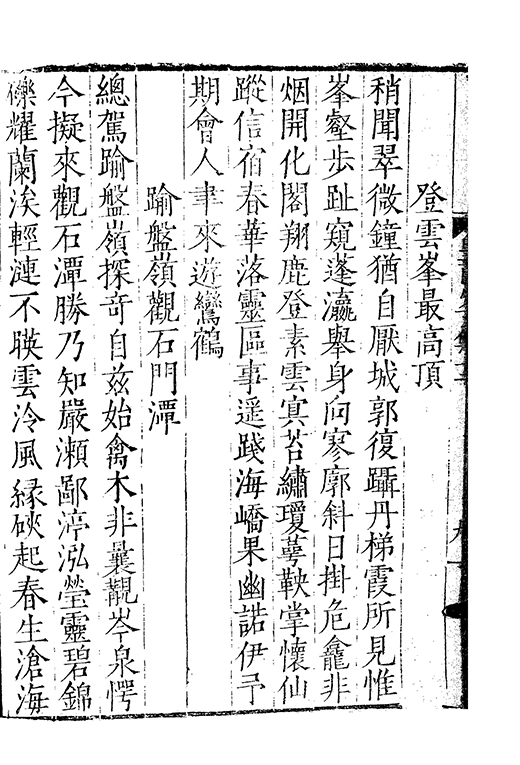 登雲峯最高頂
稍聞翠微鐘猶自厭城郭復躡丹梯霞所見惟
峯壑步趾窺蓬瀛舉身向寥廓斜日掛危龕非
烟開化閣翔鹿登素雲寘苔繡瓊萼鞅掌懷仙
蹤信宿春華落靈區事遥踐海嶠果幽諾伊予
期會人聿來遊鸞鶴
踰盤嶺觀石門潭
總駕踰盤嶺探奇自兹始禽木非曩覯岑泉愕
今擬來觀石潭勝乃知嚴瀨鄙渟泓瑩靈碧錦
礫耀蘭涘輕漣不暎雲泠風緣硤起春生滄海